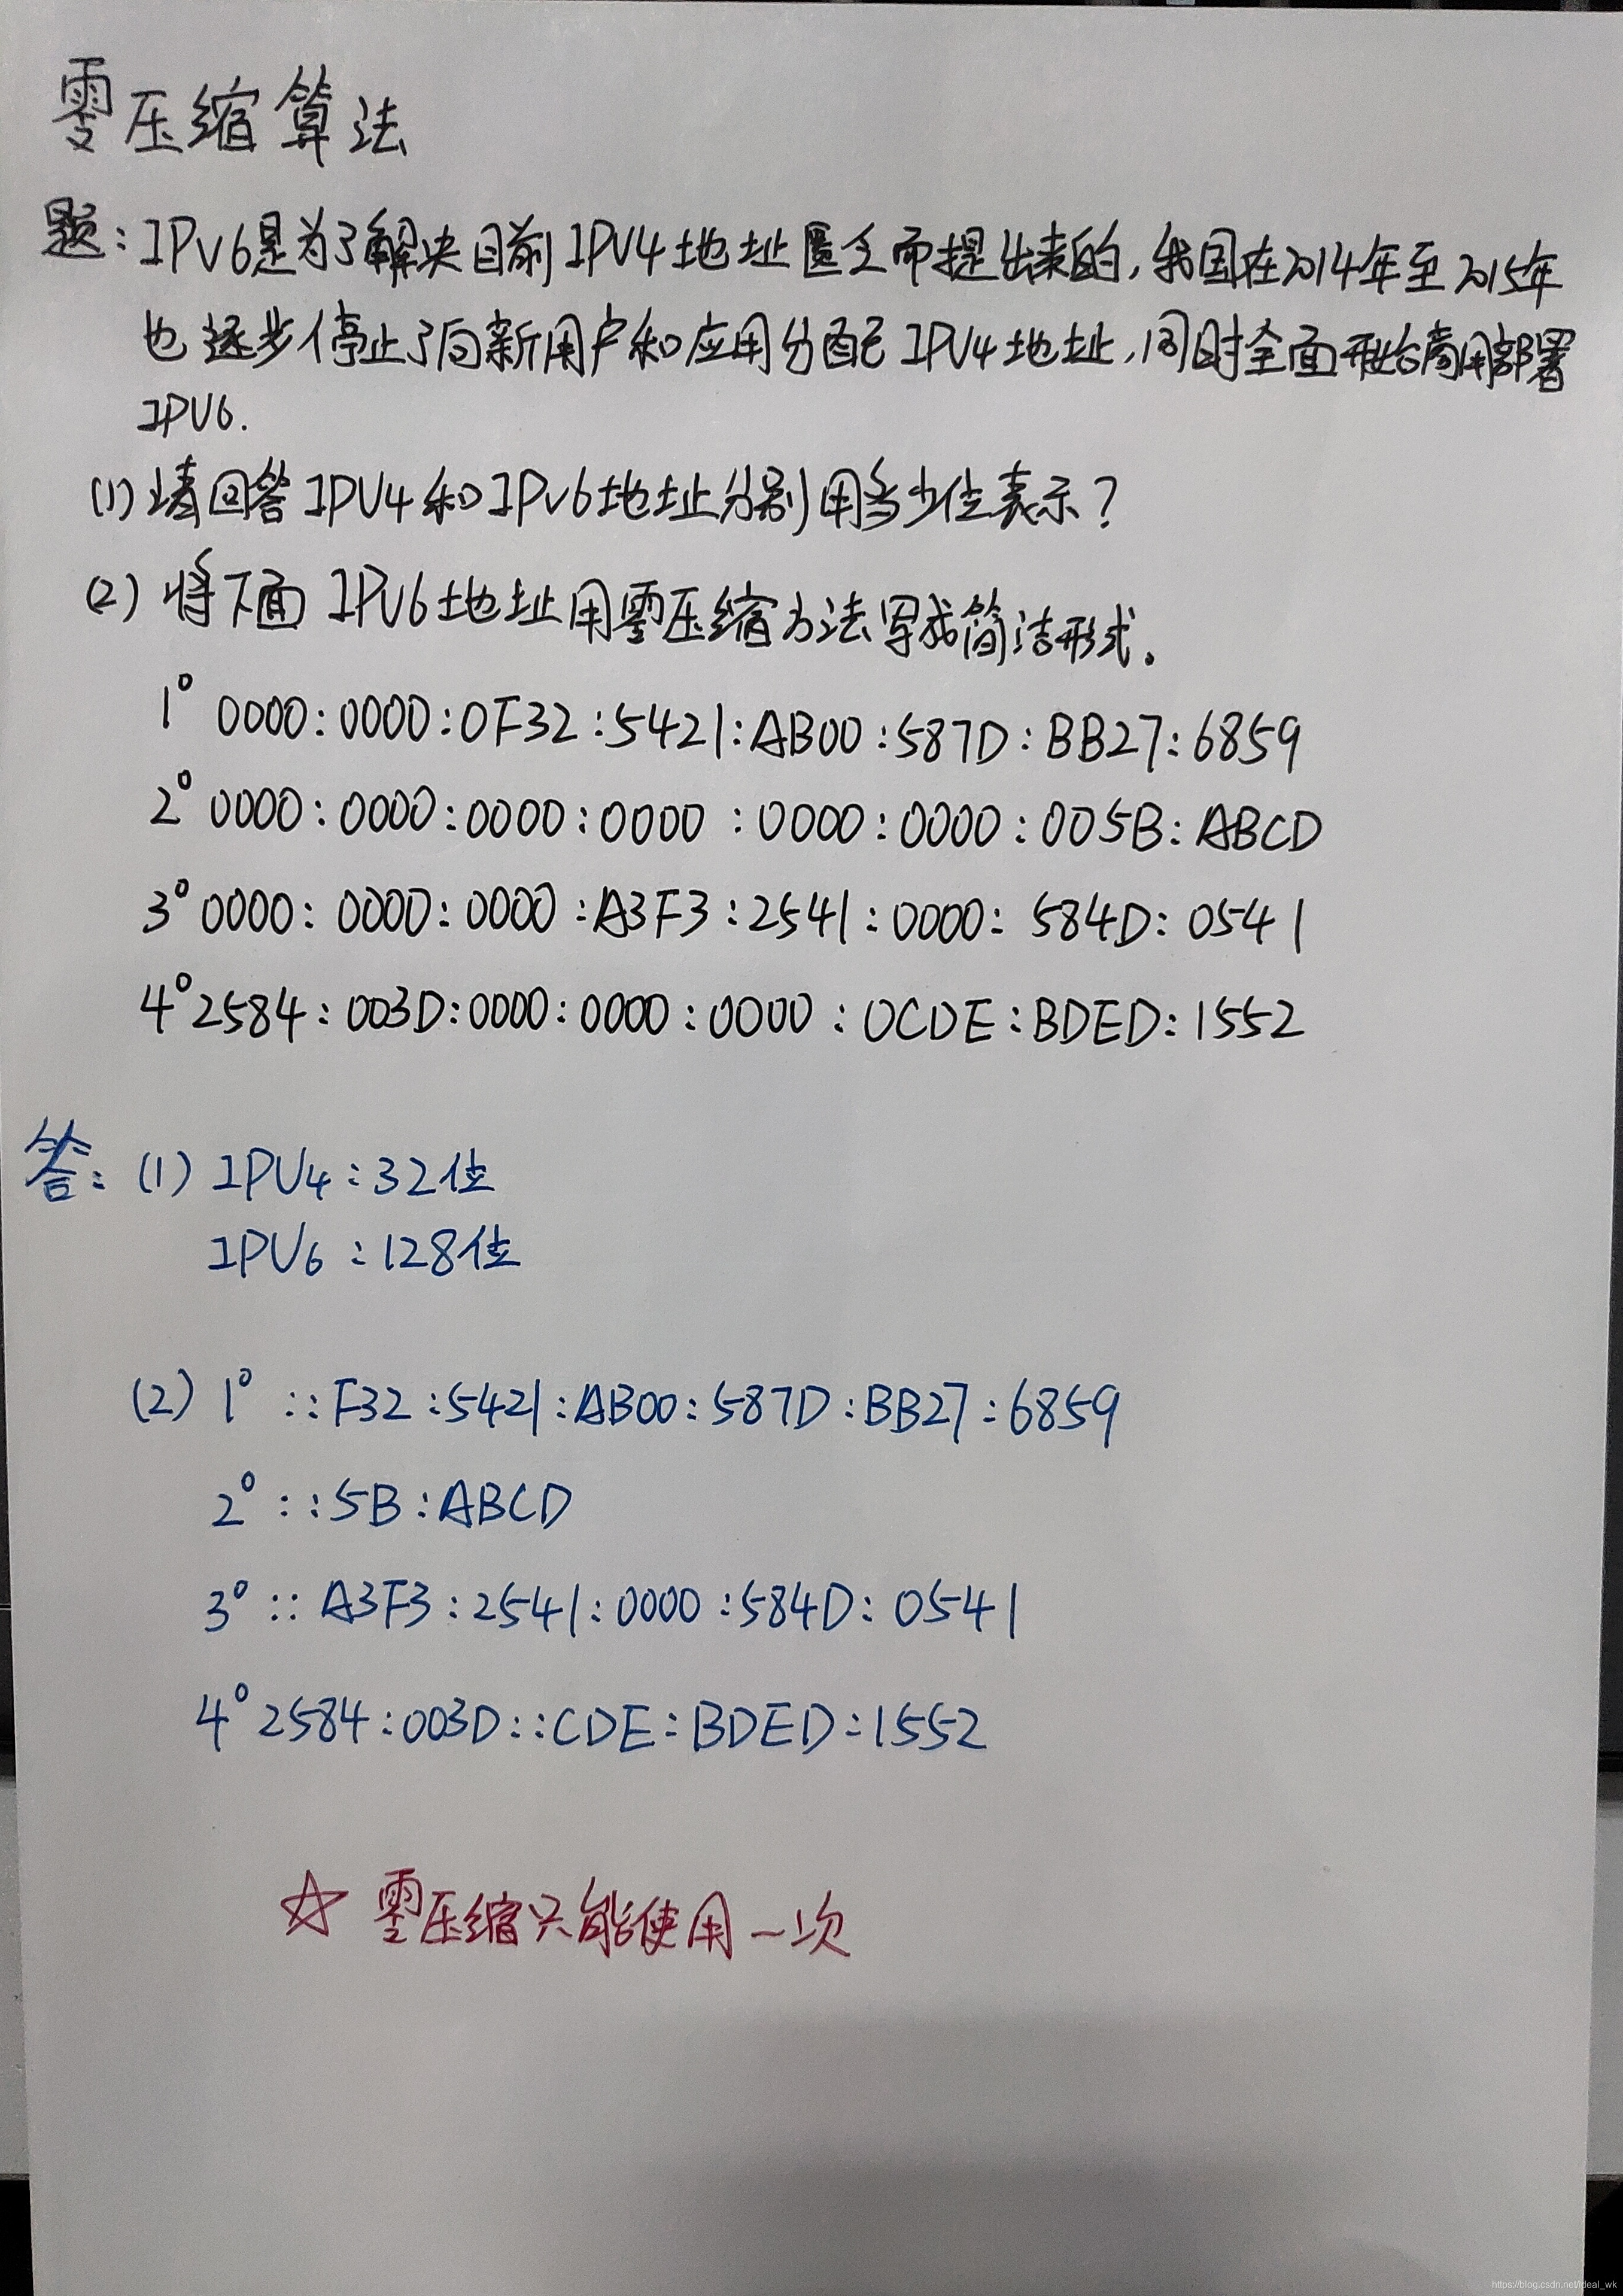 零压缩算法
题:IPV6是为了解决目前IPV4地址匮乏而提出来的,我国在2014年至2015年
也逐步停止了向新用户和应用分配IPV4地址,同时全面开始商用部署
IPV6.
(1)请回答IPV4和IPV6地址分别用多少位表示?
(2)将下面IPV6地址用零压缩方法写成简洁形式。
1° 0000:0000:0F32:5421:AB00:587D:BB27:6859
2° 0000:0000:0000:0000:0000:0000:005B:ABCD
3° 0000:0000:0000:A3F3:2541:0000:584D:0541
4° 2584:003D:0000:0000:0000:0CDE:BDED:1552
答:(1) IPV4:32位
IPV6:128位
(2) 1° ::F32:5421:AB00:587D:BB27:6859
2° ::5B:ABCD
3° ::A3F3:2541:0000:584D:0541
4° 2584:003D::CDE:BDED:1552
☆ 零压缩只能使用一次
https://blog.csdn.net/ideal_wk